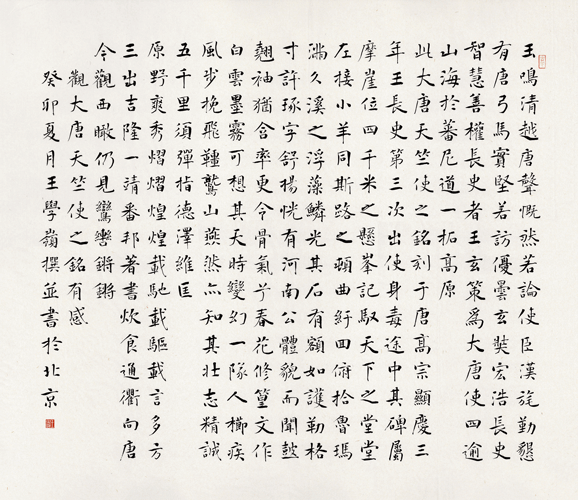 玉鳴清越唐聲慨然若論使臣漢旄勤懇
有唐弓馬實堅若訪優曇玄奘宏浩長史
智慧善權長史者王玄策為大唐使四逾
山海於蕃尼道一拓高原
此大唐天竺使之銘刻于唐高宗顯慶三
年王長史第三次出使身毒途中其碑屬
摩崖位四千米之懸峯記馭天下之堂堂
左接小羊同斯路之頓曲紆四俯拾魯瑪
滿久溪之浮藻鱗光其石有額如護勒格
寸許琢字舒揚恍有河南公體貌而聞鼓
翹袖猶含率更令骨氣兮春花修篁文作
白雲墨霧可想其天時變幻一隊人櫛疾
風步挽飛韁鷲山燕然亦知其壯志精誠
五千里須彈指德澤維臣
原野爽秀熠熠煌煌載馳載驅載言多方
三出吉隆一靖番邦著書炊食通衢向唐
今觀西瞰仍見鸞轡鏘鏘
觀大唐天竺使之銘有感
癸卯夏月王學嶺撰並書於北京